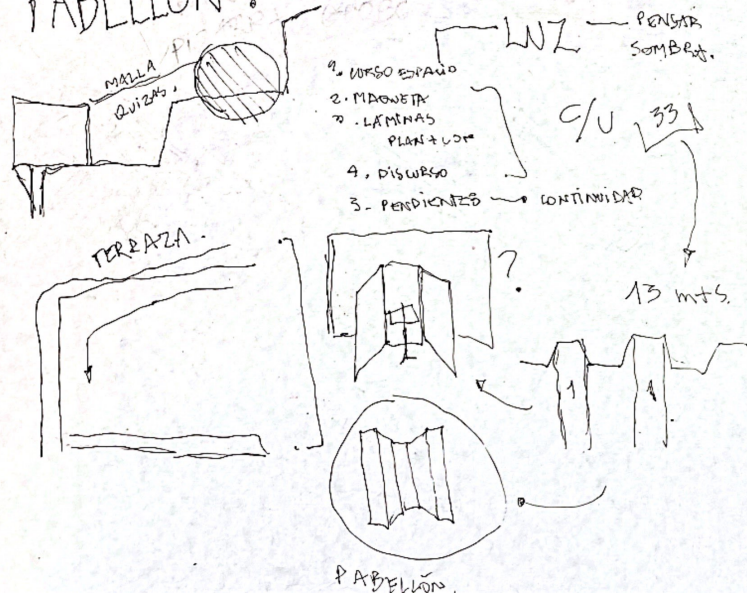 PABELLÓN
MALLA
QUIZAS.
LUZ — PENSAR
SOMBRA.
1. CURSO ESPACIO
2. MAQUETA
3. LAMINAS
4. DISCURSO
3- PENDIENTES → CONTINUIDAD
C/U 33
13 mts.
TERRAZA.
?
1 1
PABELLÓN.